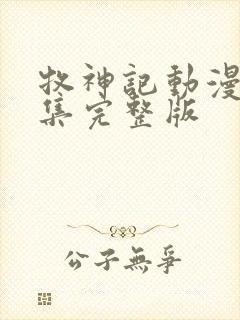 牧神記動漫
集完整版
公子無爭